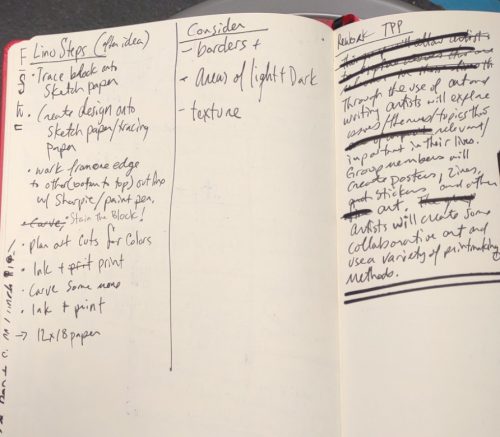 Lino Steps (after idea)
• Trace block onto
Sketch paper
• Create design onto
sketch paper/tracing
paper
• work from one edge
to other (bottom to top) outline
w/ Sharpie/paint pen.
• Carve, Stain the Block!
• plan out cuts for colors
• Ink + print print
• Carve some more
• Ink + print
→ 12x18 paper
Consider
- borders +
- Areas of light + Dark
- texture
Rework TPP
Through the use of art and
writing artists will explore
issues/themes/topics that
relevant/
important in their lives.
Group members will
create Posters, Zines,
Stickers, and other
art.
artists will create some
collaborative art and
use a variety of printmaking
methods.